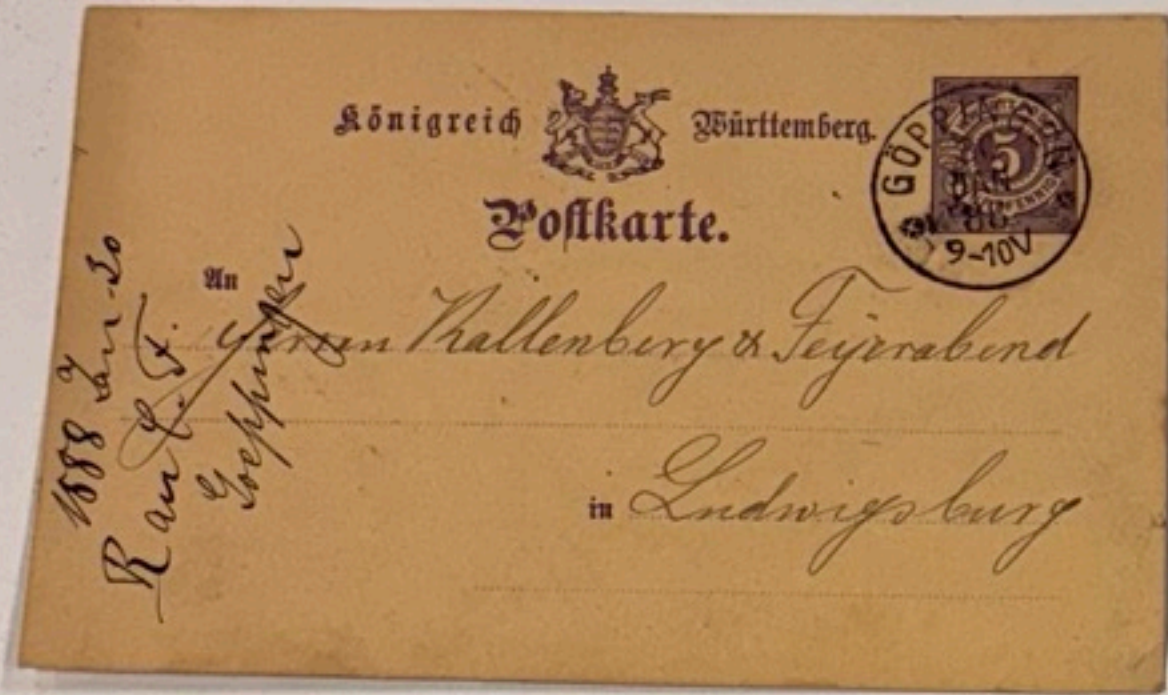 Königreich Württemberg.
Postkarte.
GÖPPINGEN
JAN
88
9-10V
5
PFENNIG
An
Herren Kallenberg & Feyerabend
in Ludwigsburg
1888 Jan-20
Rau C. F.
Goeppingen